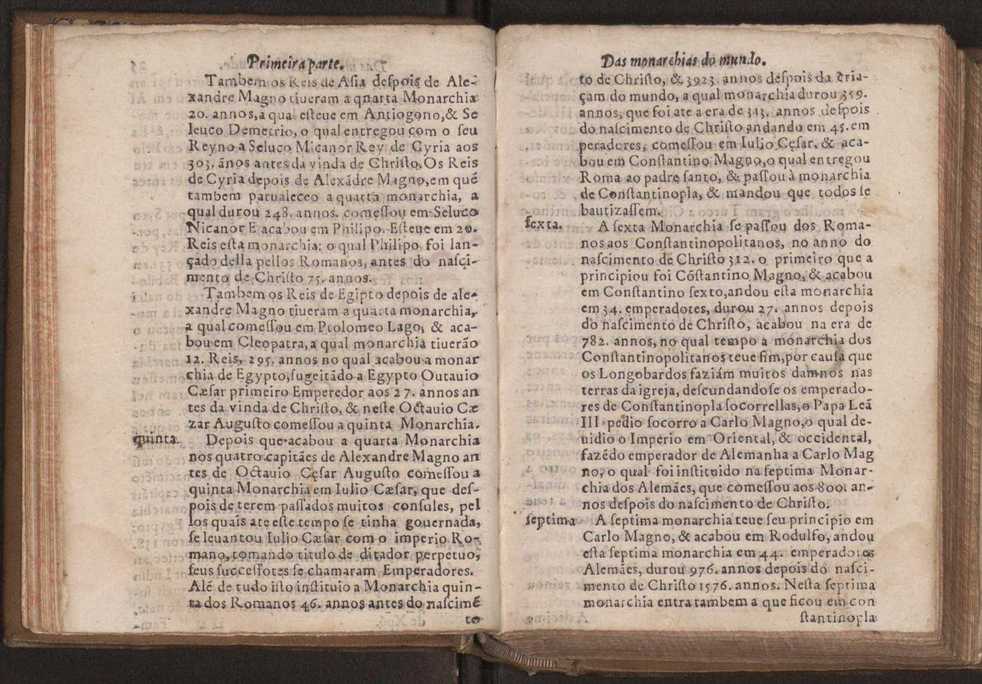 Primeira parte.
Tambem os Reis de Asia despois de Ale-
xandre Magno tiueram a qnarta Monarchia
20. annos, a qual esteue em Antiogono, & Se
leuco Demetrio, o qual entregou com o seu
Reyno a Seluco Micanor Rey de Cyria aos
303. ãnos antes da vinda de Christo, Os Reis
de Cyria depois de Alexãdre Magno, em quẽ
tambem parualeceo a quarta monarchia, a
qual durou 248. annos. comessou em Seluco
Nicanor E acabou em Philipo. Esteue em 20.
Reis esta monarchia; o qual Philipo, foi lan-
çado della pellos Romanos, antes do nasçi-
mento de Christo 75. annos.
Tambem os Reis de Egipto depois de ale-
xandre Magno tiueram a quarta monarchia,
a qual comessou em Ptolomeo Lago, & aca-
bou em Cleopatra, a qual monarchia tiuerão
12. Reis, 295. annos no qual acabou a monar
chia de Egypto, sugeitãdo a Egypto Outauio
Cæsar primeiro Emperedor aos 27. annos an
tes da vinda de Christo, & neste Octauio Cæ
zar Augusto comessou a quinta Monarchia.
quinta.
Depois que acabou a quarta Monarchia
nos quatro capitães de Alexandre Magno an
tes de Octauio Cęsar Augusto comessou a
quinta Monarchia em Iulio Cæsar, que des-
pois de terem passados muitos consules, pel
los quais ate este tempo se tinha gouernada,
se leuantou Iulio Cæsar com o imperio Ro-
mano, tomando titulo de ditador perpetuo,
seus successores se chamaram Emperadores.
Alẽ de tudo isto instituio a Monarchia quin-
ta dos Romanos 46. annos antes do nascimẽ
to
Das monarchias do mundo.
to de Christo, & 3923. annos despois da cria-
çam do mundo, a qual monarchia durou 359.
annos, que foi ate a era de 313. annos despois
do nascimento de Christo andando em 45. em
peradores, comessou em Iulio Cęsar, & aca-
bou em Constantino Magno, o qual entregou
Roma ao padre santo, & passou à monarchia
de Constantinopla, & mandou que todos se
bautizassem.
sexta.
A sexta Monarchia se passou dos Roma-
nos aos Constantinopolitanos, no anno do
nascimento de Christo 312. o primeiro que a
principiou foi Cõstantino Magno, & acabou
em Constantino sexto, andou esta monarchia
em 34. emperadores, durou 27. annos depois
do nascimento de Christo, acabou na era de
782. annos, no qual tempo a monarchia dos
Constantinopolitanos teue fim, por causa que
os Longobardos faziám muitos damnos nas
terras da igreja, descundandose os emperado-
res de Constantinopla socorrellas, o Papa Leã
III. pedio socorro a Carlo Magno, o qual de-
uidio o Imperio em Oriental, & occidental,
fazẽdo emperador de Alemanha a Carlo Mag
no, o qual foi instituido na septima Monar-
chia dos Alemães, que comessou aos 800. an-
nos despois do nascimento de Christo.
septima
A septima monarchia teue seu principio em
Carlo Magno, & acabou em Rodulfo, andou
esta septima monarchia em 44. emperadores
Alemães, durou 976. annos depois do nasci-
mento de Christo 1576. annos. Nesta septima
monarchia entra tambem a que ficou em con
stantinopla